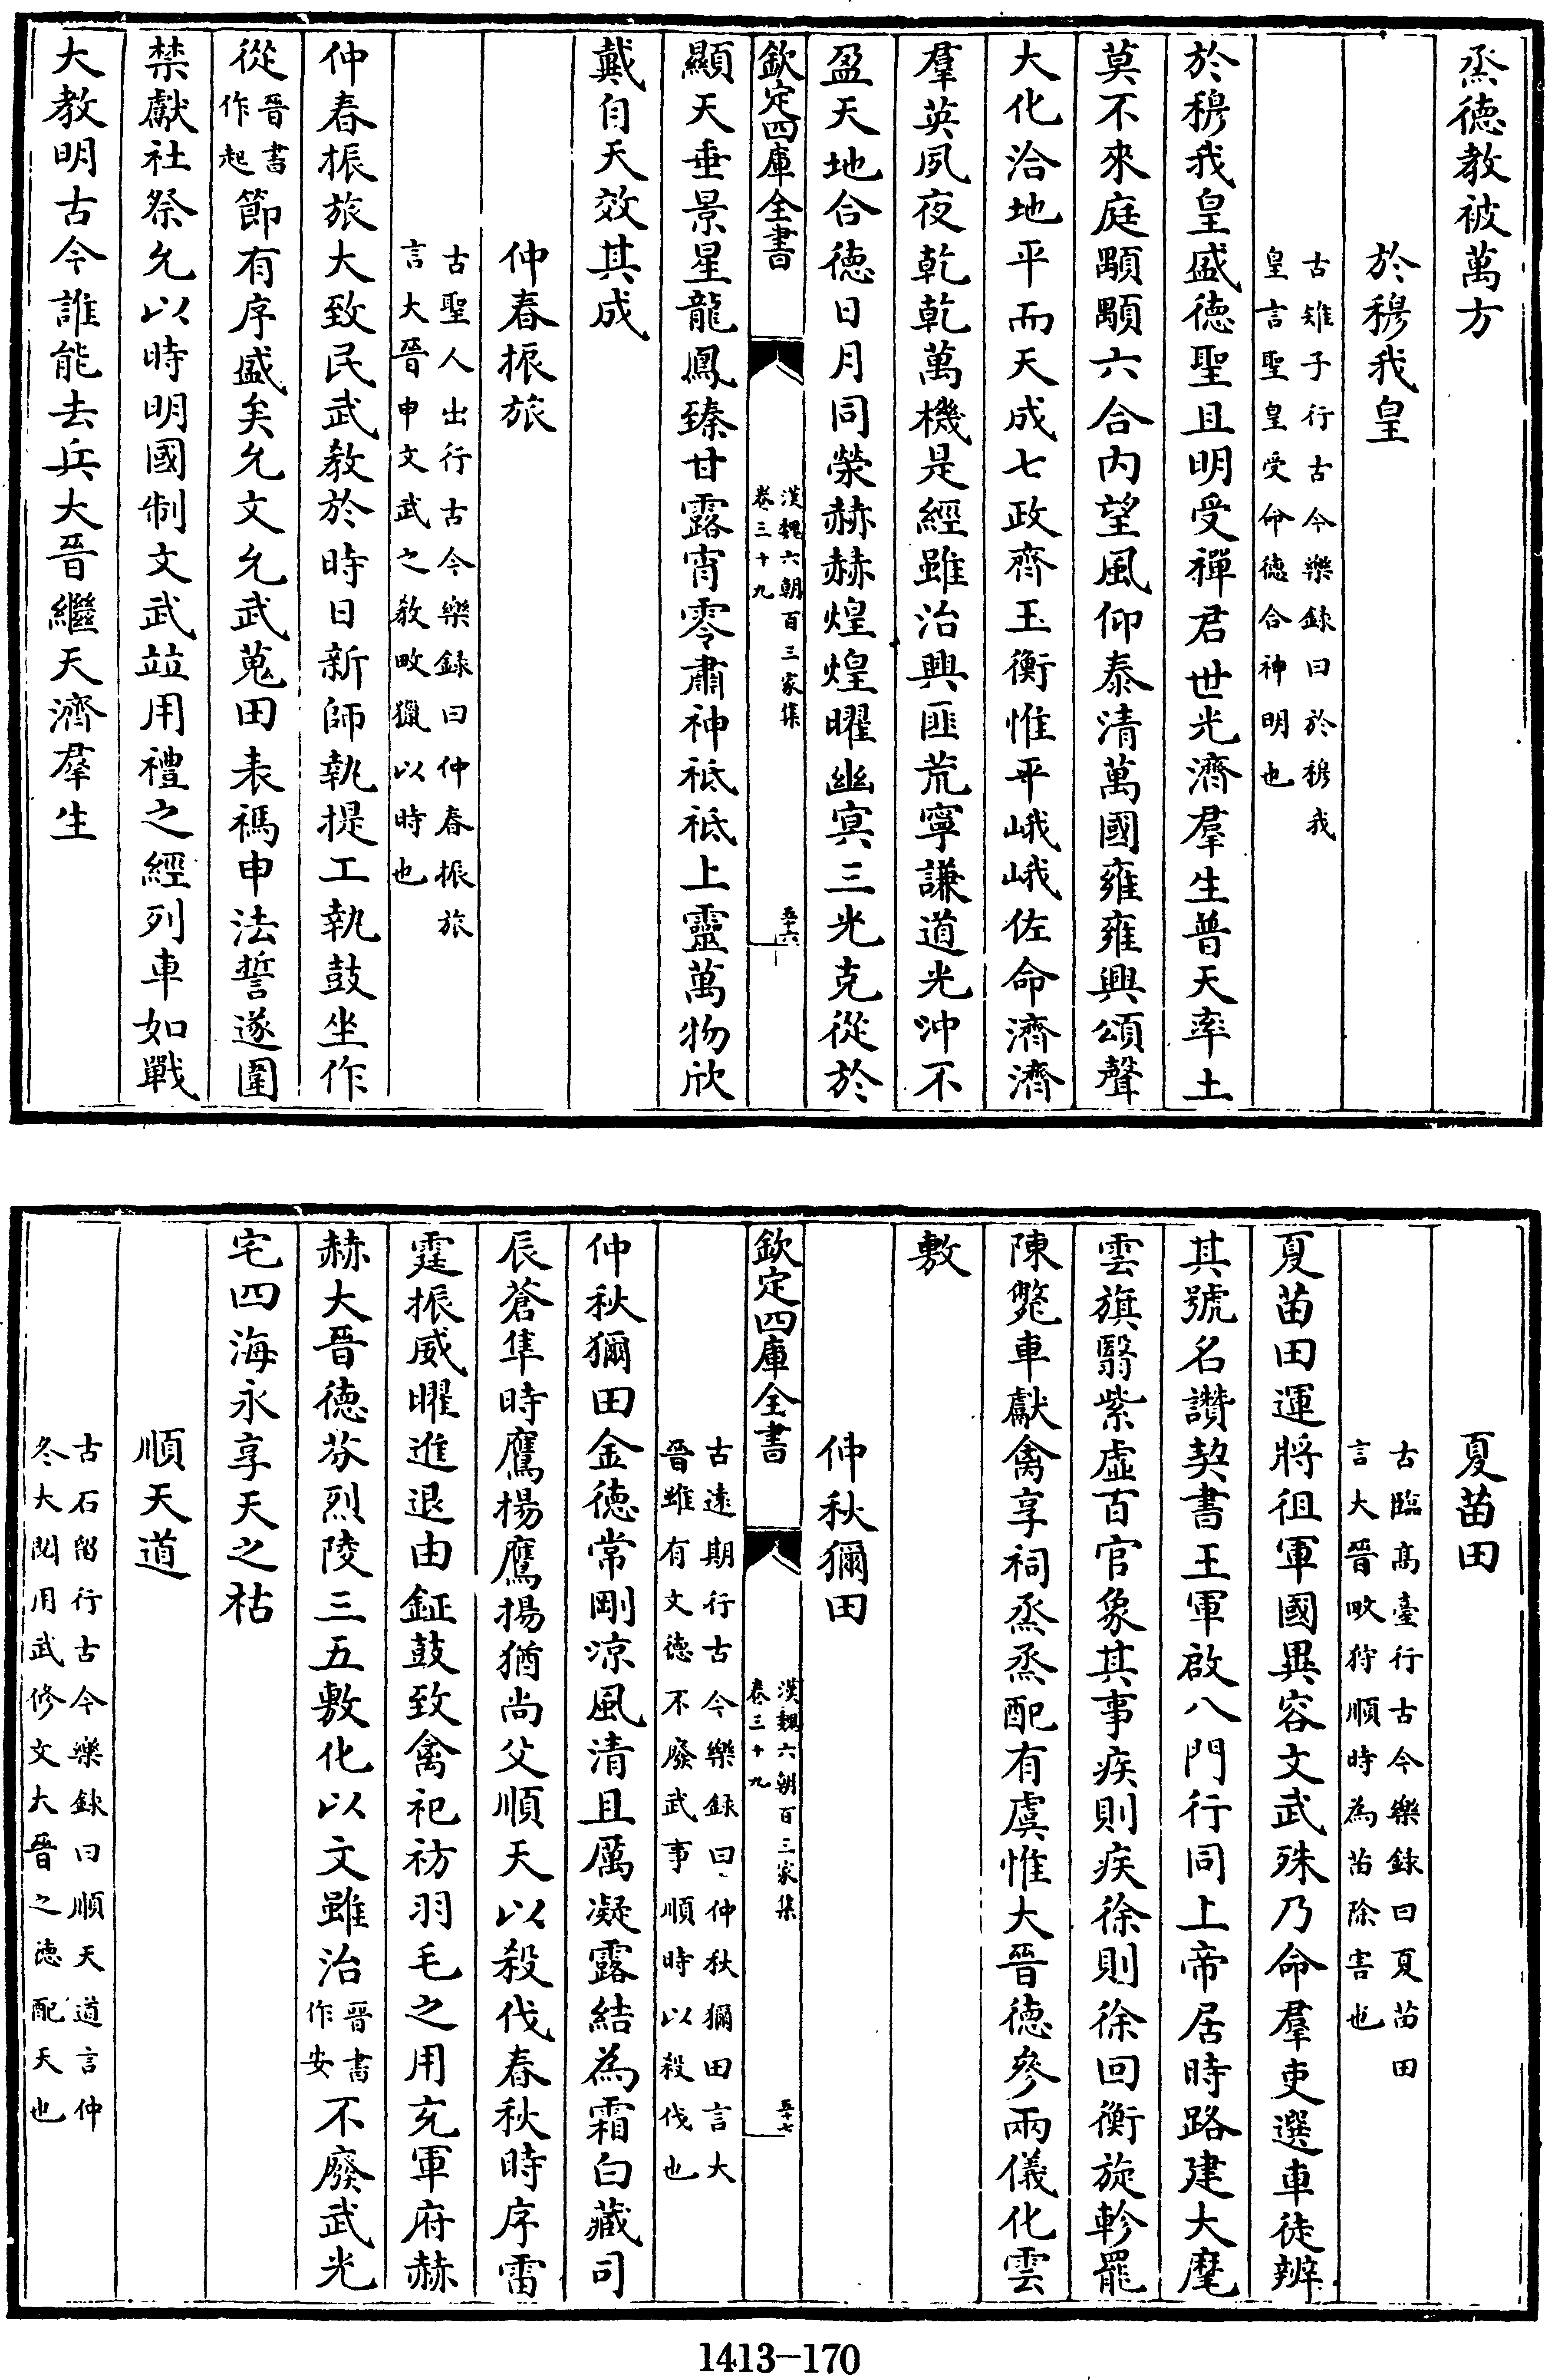 烝徳教被萬方
於穆我皇
古雉子行古今樂録曰於穆我
皇言聖皇受命徳合神明也
於穆我皇盛徳聖且明受禪君世光濟羣生普天率土
莫不來庭顒顒六合内望風仰泰清萬國雍雍興頌聲
大化洽地平而天成七政齊玉衡惟平峨峨佐命濟濟
羣英夙夜乾乾萬機是經雖治興匪荒寧謙道光沖不
盈天地合徳日月同榮赫赫煌煌曜幽冥三光克從於
欽定四庫全書
漢魏六朝百三家集
卷三十九
五十六
顯天垂景星龍鳳臻甘露宵零肅神祗祗上靈萬物欣
戴自天效其成
仲春振旅
古聖人出行古今樂録曰仲春振旅
言大晉申文武之教畋獵以時也
仲春振旅大致民武教於時日新師執提工執鼓坐作
從晉書作起節有序盛矣允文允武蒐田表禡申法誓遂圍
禁獻社祭允以時明國制文武竝用禮之經列車如戰
大教明古今誰能去兵大晉繼天濟羣生
夏苗田
古臨髙臺行古今樂録曰夏苗田
言大晉畋狩順時為苗除害也
夏苗田運將徂軍國異容文武殊乃命羣吏選車徒辨
其號名讚契書王軍啟八門行同上帝居時路建大麾
雲旗翳紫虛百官象其事疾則疾徐則徐回衡旋軫罷
陳獘車獻禽享祠烝烝配有虞惟大晉徳參兩儀化雲
敷
仲秋獮田
欽定四庫全書
漢魏六朝百三家集
卷三十九
五十七
古逺期行古今樂録曰仲秋獮田言大
晉雖有文徳不廢武事順時以殺伐也
仲秋獮田金徳常剛涼風清且厲凝露結為霜白藏司
辰蒼隼時鷹揚鷹揚猶尚父順天以殺伐春秋時序雷
霆振威曜進退由鉦鼓致禽祀祊羽毛之用充軍府赫
赫大晉徳芬烈陵三五敷化以文雖治晉書作安不廢武光
宅四海永享天之祜
順天道
古石留行古今樂録曰順天道言仲
冬大閲用武修文大晉之徳配天也
1413-170